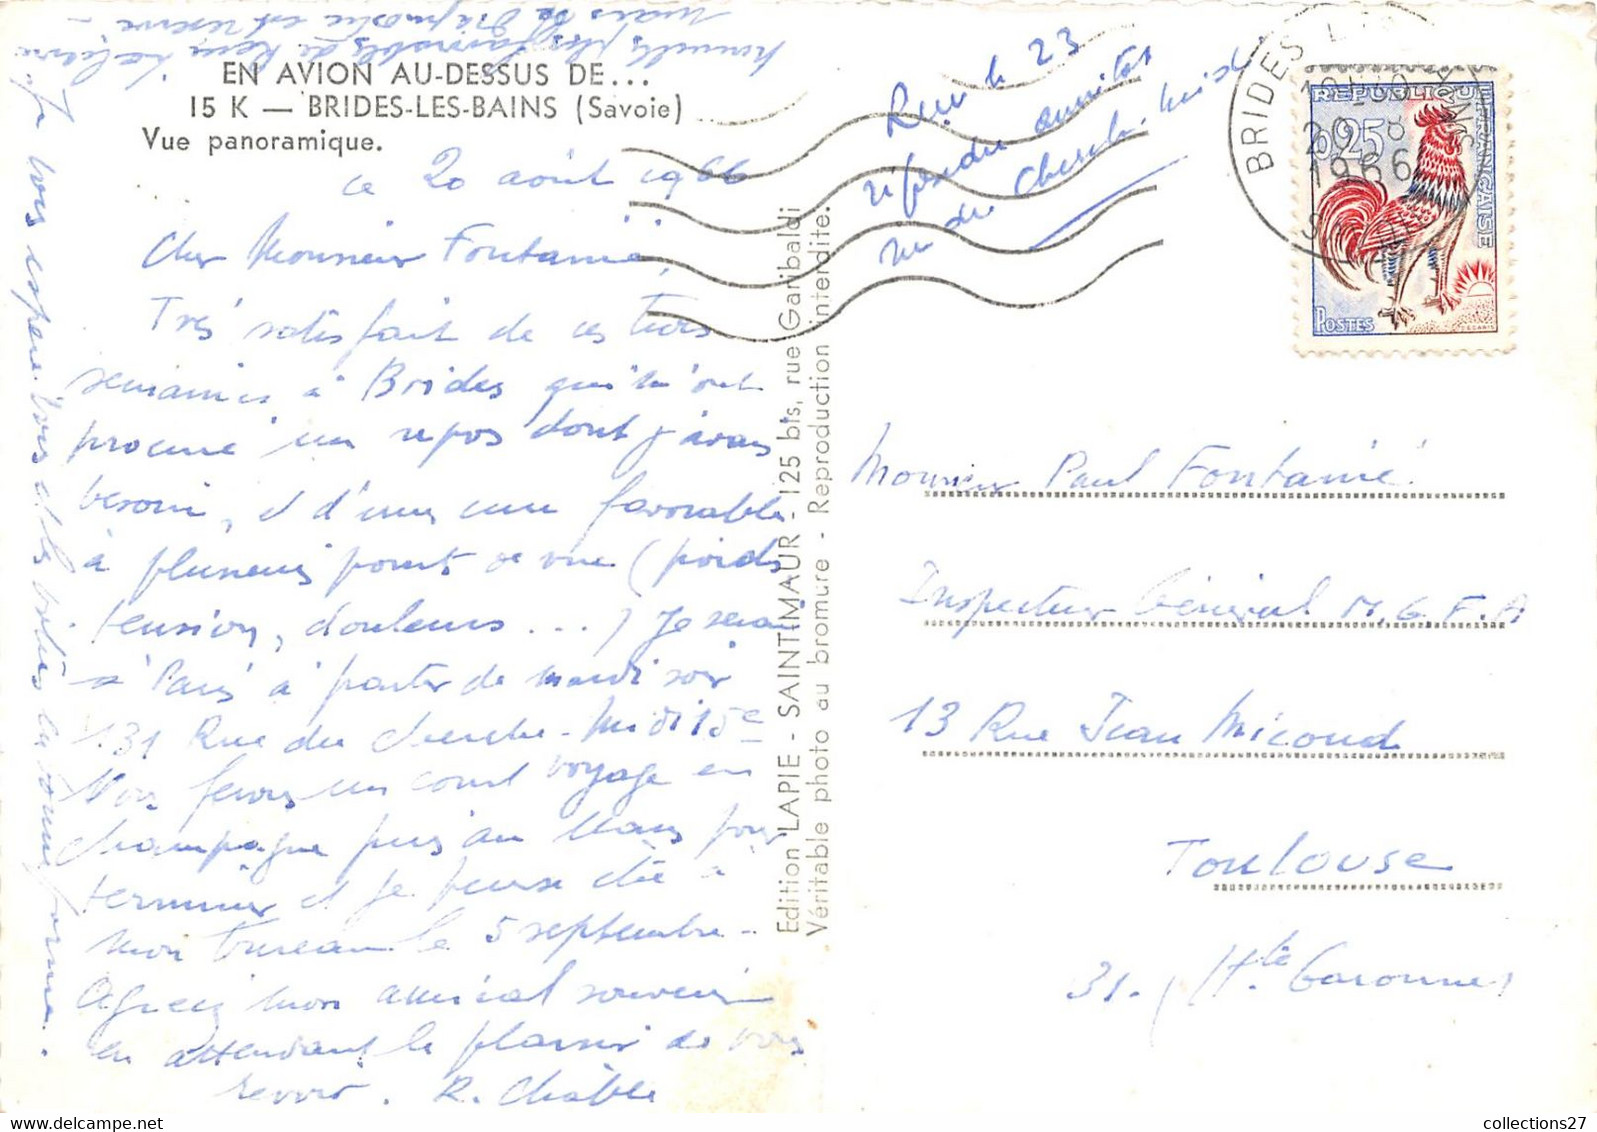 EN AVION AU-DESSUS DE...
15 K — BRIDES-LES-BAINS (Savoie)
Vue panoramique.
ce 20 août 1966
Cher Monsieur Fontanié,
Très satisfait de ces trois
semaines à Brides qui m'ont
procuré un repos dont j'avais
besoin, et d'une cure favorable
à plusieurs points de vue (poids
tension, douleurs...) Je serai
à Paris à partir de mardi soir
131 Rue du Cherche-Midi 15e
Nous ferons un court voyage en
Champagne puis au Mans pour
terminer et je pense être à
mon bureau le 5 septembre.
Agréez mon amical souvenir
en attendant le plaisir de vous
revoir. R. Chable
Je vous espère vous et les vôtres en bonne forme.
nouvelles plus favorables de
mais le diagnostic est réservé
Edition LAPIE - SAINT-MAUR - 125 bis, rue Garibaldi
Véritable photo au bromure - Reproduction interdite.
Reçu le 23
répondre amitiés
rue du Cherche-Midi
BRIDES LES BAINS
1966
REPUBLIQUE FRANÇAISE
0,25
POSTES
Monsieur Paul Fontanié
Inspecteur Général M.G.F.A
13 Rue Jean Micoud
Toulouse
31. (Hte Garonne)
collections27